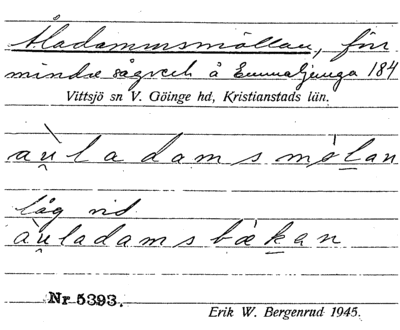 Åladammsmöllan, för
mindre sågverk å Emmaljunga 184
Vittsjö sn V. Göinge hd, Kristianstads län.
au̯ladamsmølan
låg vid
au̯ladamsbækan
Nr 5393.
Erik W. Bergenrud 1945.